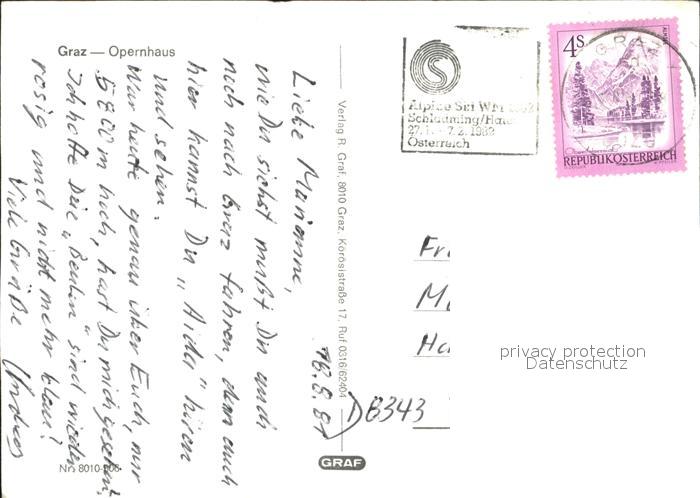 Graz — Opernhaus
Liebe Marianne,
wie Du siehst mußt Du auch
noch nach Graz fahren, denn auch
hier kannst Du „Aida" hören
und sehen.
War heute genau über Euch, nur
5800 m hoch, hast Du mich gesehen?
Ich hoffe Deine sind wieder
rosig und nicht mehr blau!
Viele Grüße Andreas
18.8.81
Nr. 8010-306
Verlag R. Graf, 8010 Graz, Körösistraße 17, Ruf 0316/62404
GRAF
Alpine Ski WM 1982
Schladming/Haus
27.1. - 7.2. 1982
Österreich
4S
REPUBLIK ÖSTERREICH
GRAZ
Fr
M
Ha
D 8343
privacy protection
Datenschutz